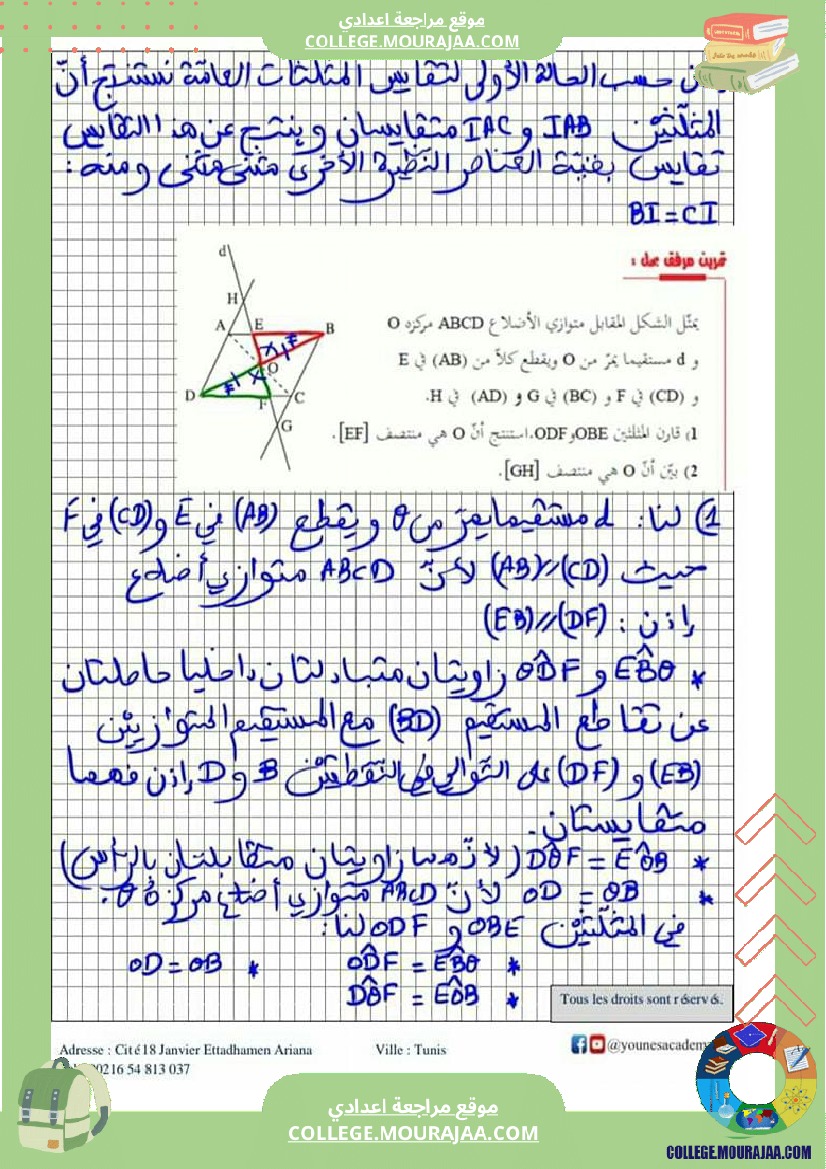 موقع مراجعة اعدادي
COLLEGE.MOURAJAA.COM
حسب الحالة الأولى لتقايس المثلثات العامّة نستنتج أنّ
المثلّثين IAB و IAC متقايسان وينتج عن هذا التقايس
تقايس بقيّة العناصر النّظيرة الأخرى مثنى مثنى ومنه :
BI = CI
تمرين مرفق عدد :
يمثّل الشكل المقابل متوازي الأضلاع ABCD مركزه O
و d مستقيما يمرّ من O ويقطع كلاّ من (AB) في E
و (CD) في F و (BC) في G و (AD) في H.
1) قارن المثلثين OBE و ODF. استنتج أنّ O هي منتصف [EF].
2) بيّن أنّ O هي منتصف [GH].
d
H
A E B
O
D F C
G
1) لنا: d مستقيما يمرّ من O ويقطع (AB) في E و (CD) في F
حيث (AB)//(CD) لأنّ ABCD متوازي أضلاع
إذن : (EB)//(DF)
* EB̂O و OD̂F زاويتان متبادلتان داخليا حاصلتان
عن تقاطع المستقيم (BD) مع المستقيم المتوازيين
(EB) و (DF) على التوالي في النقطتين B و D إذن فهما
متقايستان.
* DÔF = EÔB (لأنّهما زاويتان متقابلتان بالرأس)
* OD = OB لأنّ ABCD متوازي أضلاع مركزه O.
في المثلّثين OBE و ODF لنا:
* OD̂F = EB̂O * OD = OB
* DÔF = EÔB
Tous les droits sont réservés.
Adresse : Cité 18 Janvier Ettadhamen Ariana Ville : Tunis @younesacadem
00216 54 813 037
موقع مراجعة اعدادي
COLLEGE.MOURAJAA.COM
COLLEGE.MOURAJAA.COM